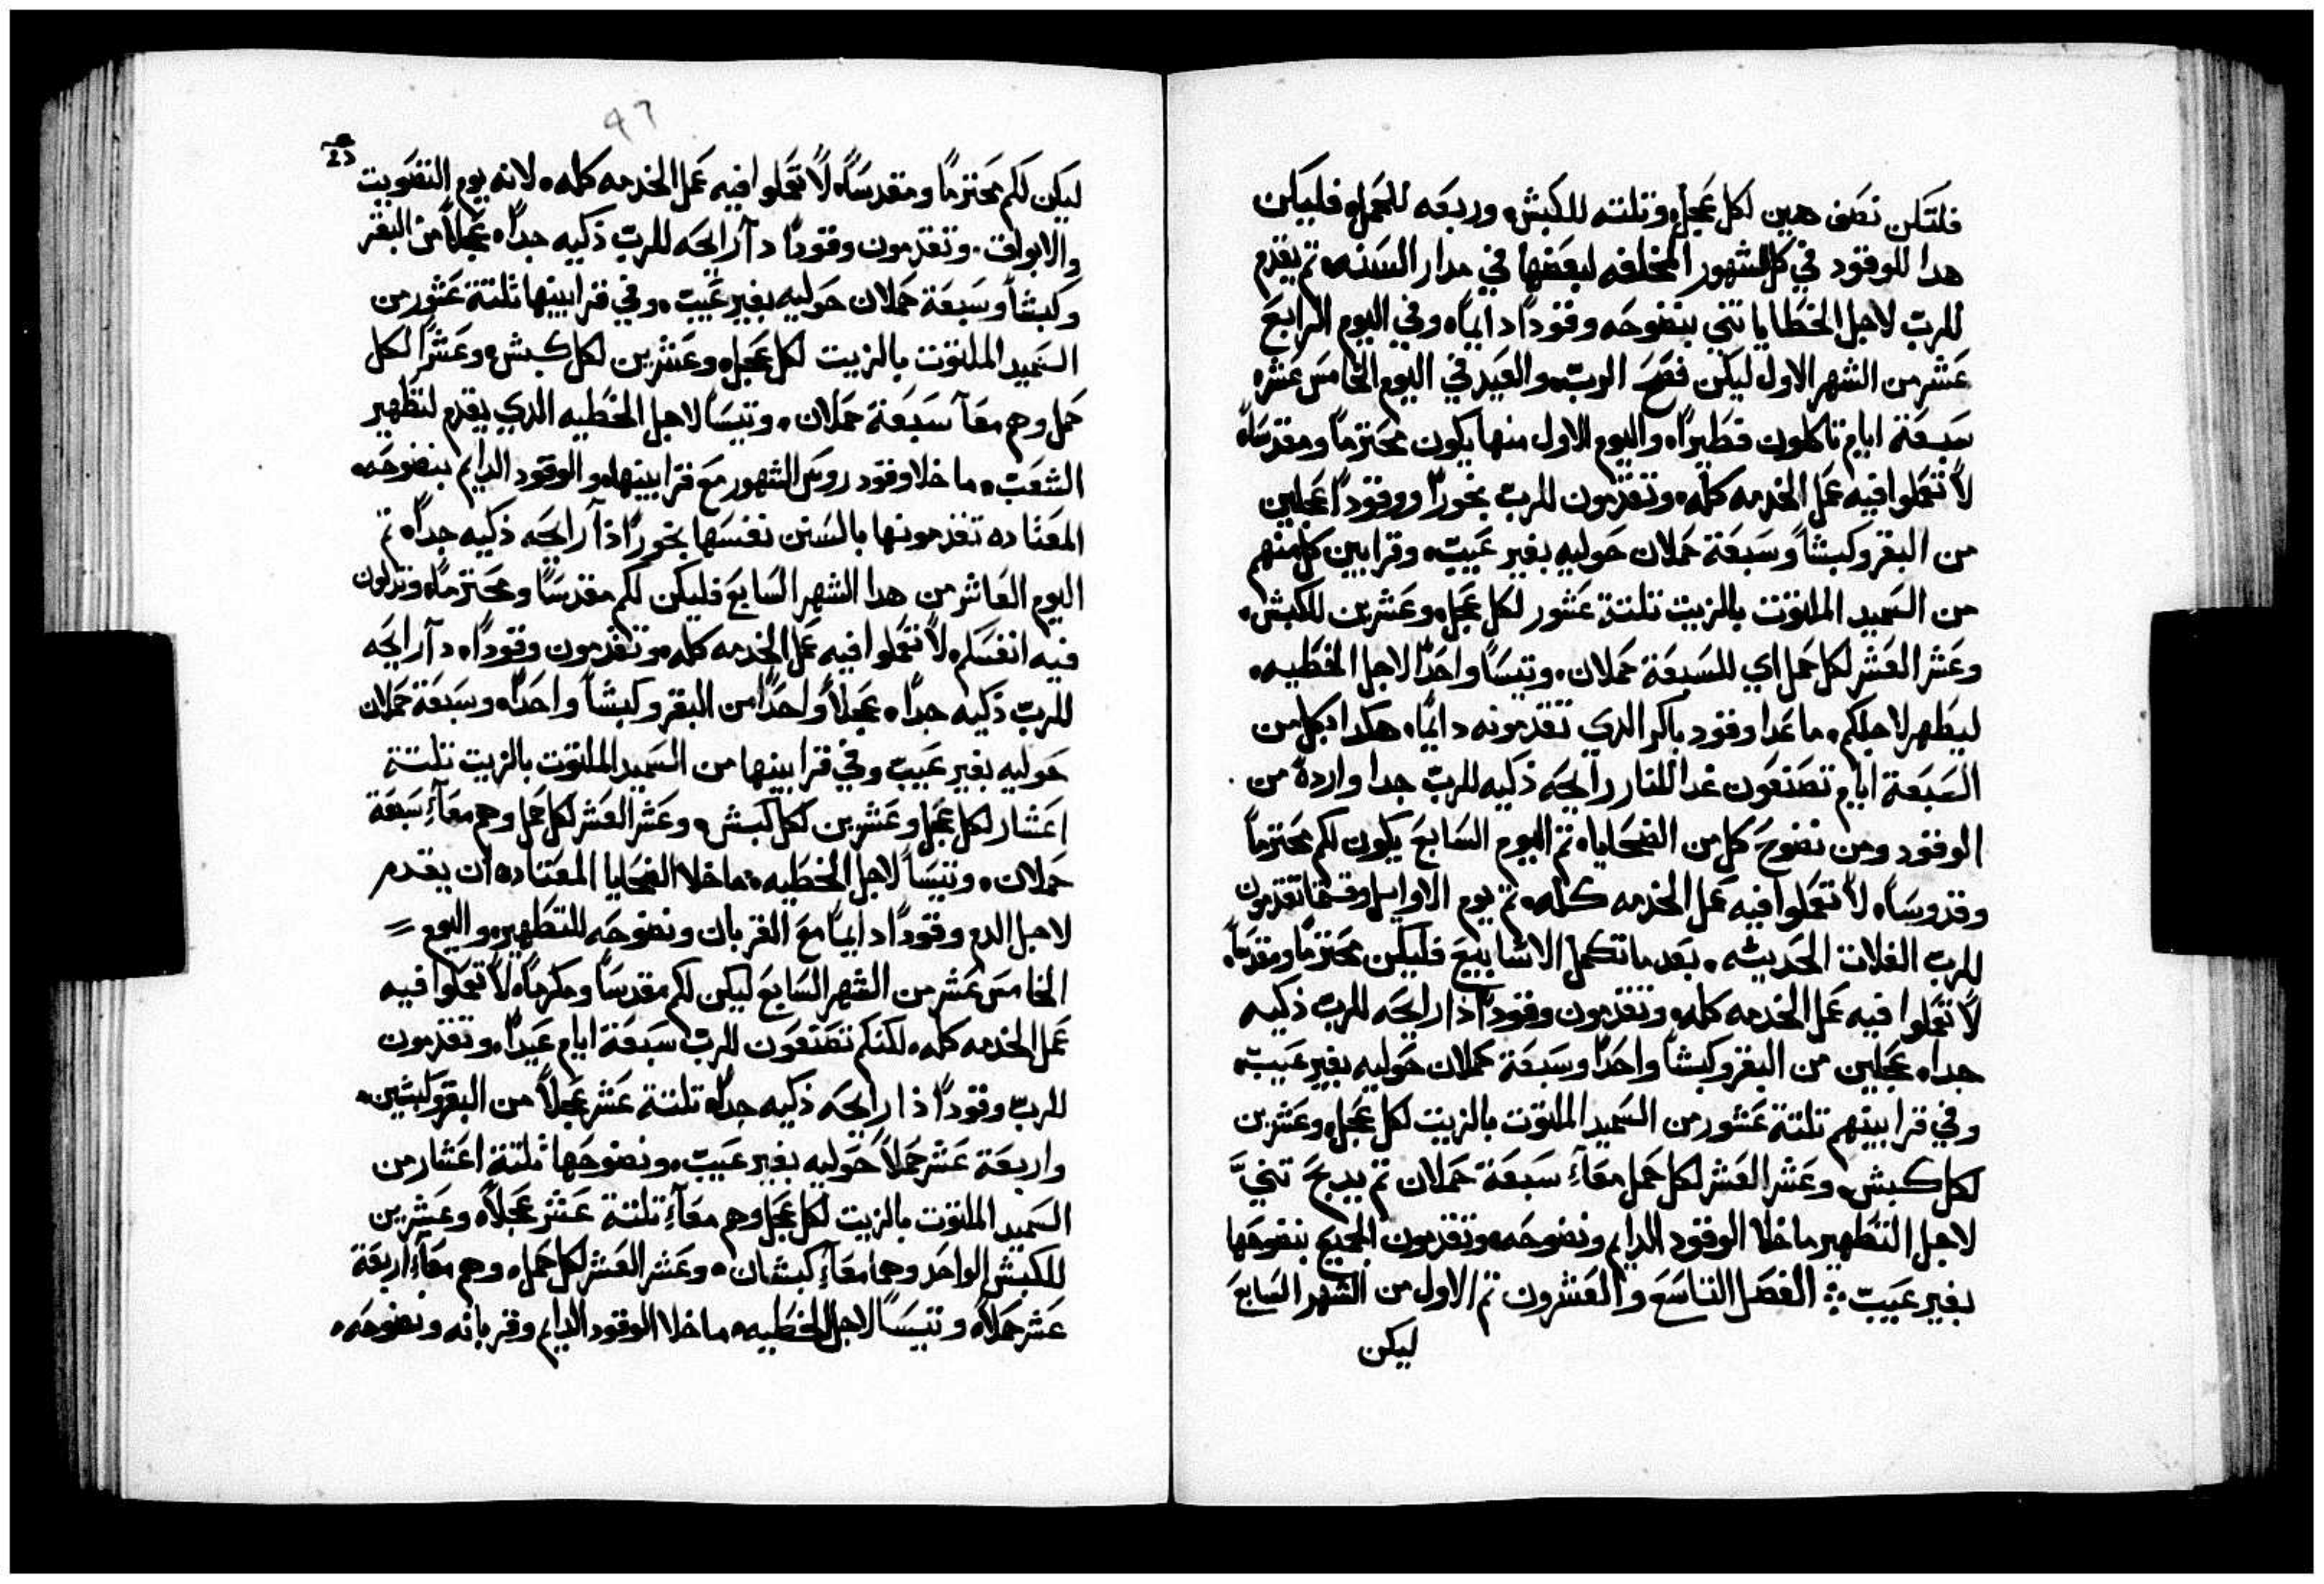 فلتكن نصف هين لكل عجل، وتلته للكبش، وربعه للحمل، فليكن
هدا للوقود في كل الشهور المخلفه لبعضها في مدار السنه، تم يقدم
للرب لاجل الخطايا تني بنضوحه وقودًا دايمًا، وفي اليوم الرابع
عشر من الشهر الاول ليكن فصح الرب، والعيد في اليوم الخامس عشر،
سبعة ايام تاكلون فطيرًا، واليوم الاول منها يكون محترمًا ومقدسًا،
لا تعملوا فيه عمل الخدمه كله، وتقدمون للرب بخورًا ووقودًا عجلين
من البقر وكبشًا وسبعة حملان حوليه بغير عيب، وقرابين كل منهم
من السميد الملتوت بالزيت تلتة عشور لكل عجل، وعشرين للكبش،
وعشر العشر لكل حمل اي للسبعة حملان، وتيسًا واحدًا لاجل الخطيه،
ليطهر لاجلكم، ما عدا وقود باكر الدي تقدمونه دايمًا، هكدا بكل من
السبعة ايام تصنعون غدا للنار رايحه ذكيه للرب جدا واردة من
الوقود ومن نضوح كل من الضحايا، تم اليوم السابع يكون لكم محترمًا
وقدوسًا، لا تعملوا فيه عمل الخدمه كله، تم يوم الاوايل وقتما تقدمون
للرب الغلات الحديثه، بعد ما تكمل الاسابيع فليكن محترمًا ومقدسًا،
لا تعملوا فيه عمل الخدمه كله، وتقدمون وقودًا ذا رايحه للرب ذكيه
جدا، عجلين من البقر وكبشًا واحدًا وسبعة حملان حوليه بغير عيب،
وفي قرابينهم تلتة عشور من السميد الملتوت بالزيت لكل عجل، وعشرين
لكل كبش، وعشر العشر لكل حمل معًا، سبعة حملان تم يدبح تنيَّ
لاجل التطهير ما خلا الوقود الدايم ونضوحه، وتقدمون الجميع بنضوحها
بغير عيب ❖ الفصل التاسع والعشرون تم الاول من الشهر السابع
ليكن
47
ليكن لكم محترمًا ومقدسًا، لا تعملوا فيه عمل الخدمه كله، لانه يوم التصويت
والابواق، وتقدمون وقودًا دا رايحه للرب ذكيه جدًا، عجلًا من البقر
وكبشًا وسبعة حملان حوليه بغير عيب، وفي قرابينها ثلتة عشور من
السميد الملتوت بالزيت لكل عجل، وعشرين لكل كبش، وعشرًا لكل
حمل وهم معًا سبعة حملان، وتيسًا لاجل الخطيه الدي يقدم لتطهير
الشعب، ما خلا وقود روس الشهور مع قرابينها، والوقود الدايم بنضوحه،
المعتاده تقدمونها بالسنن نفسها بخورًا ذا رايحه ذكيه جدًا، تم
اليوم العاشر من هدا الشهر السابع فليكن لكم مقدسًا ومحترمًا، وتدلون
فيه انفسكم، لا تعملوا فيه عمل الخدمه كله، وتقدمون وقودًا، دا رايحه
للرب ذكيه جدًا، عجلًا واحدًا من البقر وكبشًا واحدًا، وسبعة حملان
حوليه بغير عيب وفي قرابينها من السميد الملتوت بالزيت تلتة
اعشار لكل عجل وعشرين لكل كبش، وعشر العشر لكل حمل وهم معًا سبعة
حملان، وتيسًا لاجل الخطيه، ما خلا الضحايا المعتاده ان يقدم
لاجل الدم وقودًا دايمًا مع القربان ونضوحه للتطهير، واليوم =
الخامس عشر من الشهر السابع ليكن لكم مقدسًا ومكرمًا، لا تعملوا فيه
عمل الخدمه كله، لكنكم تصنعون للرب سبعة ايام عيدًا، وتقدمون
للرب وقودًا ذا رايحه ذكيه جدًا، تلتة عشر عجلًا من البقر وكبشين،
واربعة عشر حملًا حوليه بغير عيب، ونضوحها ثلتة اعشار من
السميد الملتوت بالزيت لكل عجل وهم معًا تلتة عشر عجلًا، وعشرين
للكبش الواحد وهما معًا كبشان، وعشر العشر لكل حمل، وهم معًا اربعة
عشر حملًا، وتيسًا لاجل الخطيه، ما خلا الوقود الدايم وقربانه ونضوحه،